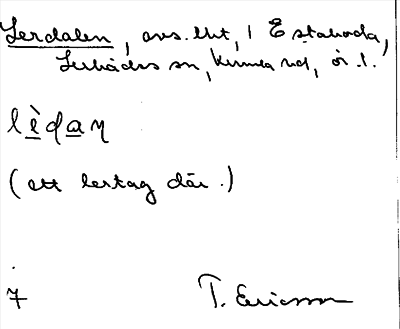 Lerdalen, avs. lht, i Ö Stahoda,
Lerbäcks sn, Kumla hd, Ör. l.
lèdaɳ
(ett lertag där.)
7 T. Ericsson